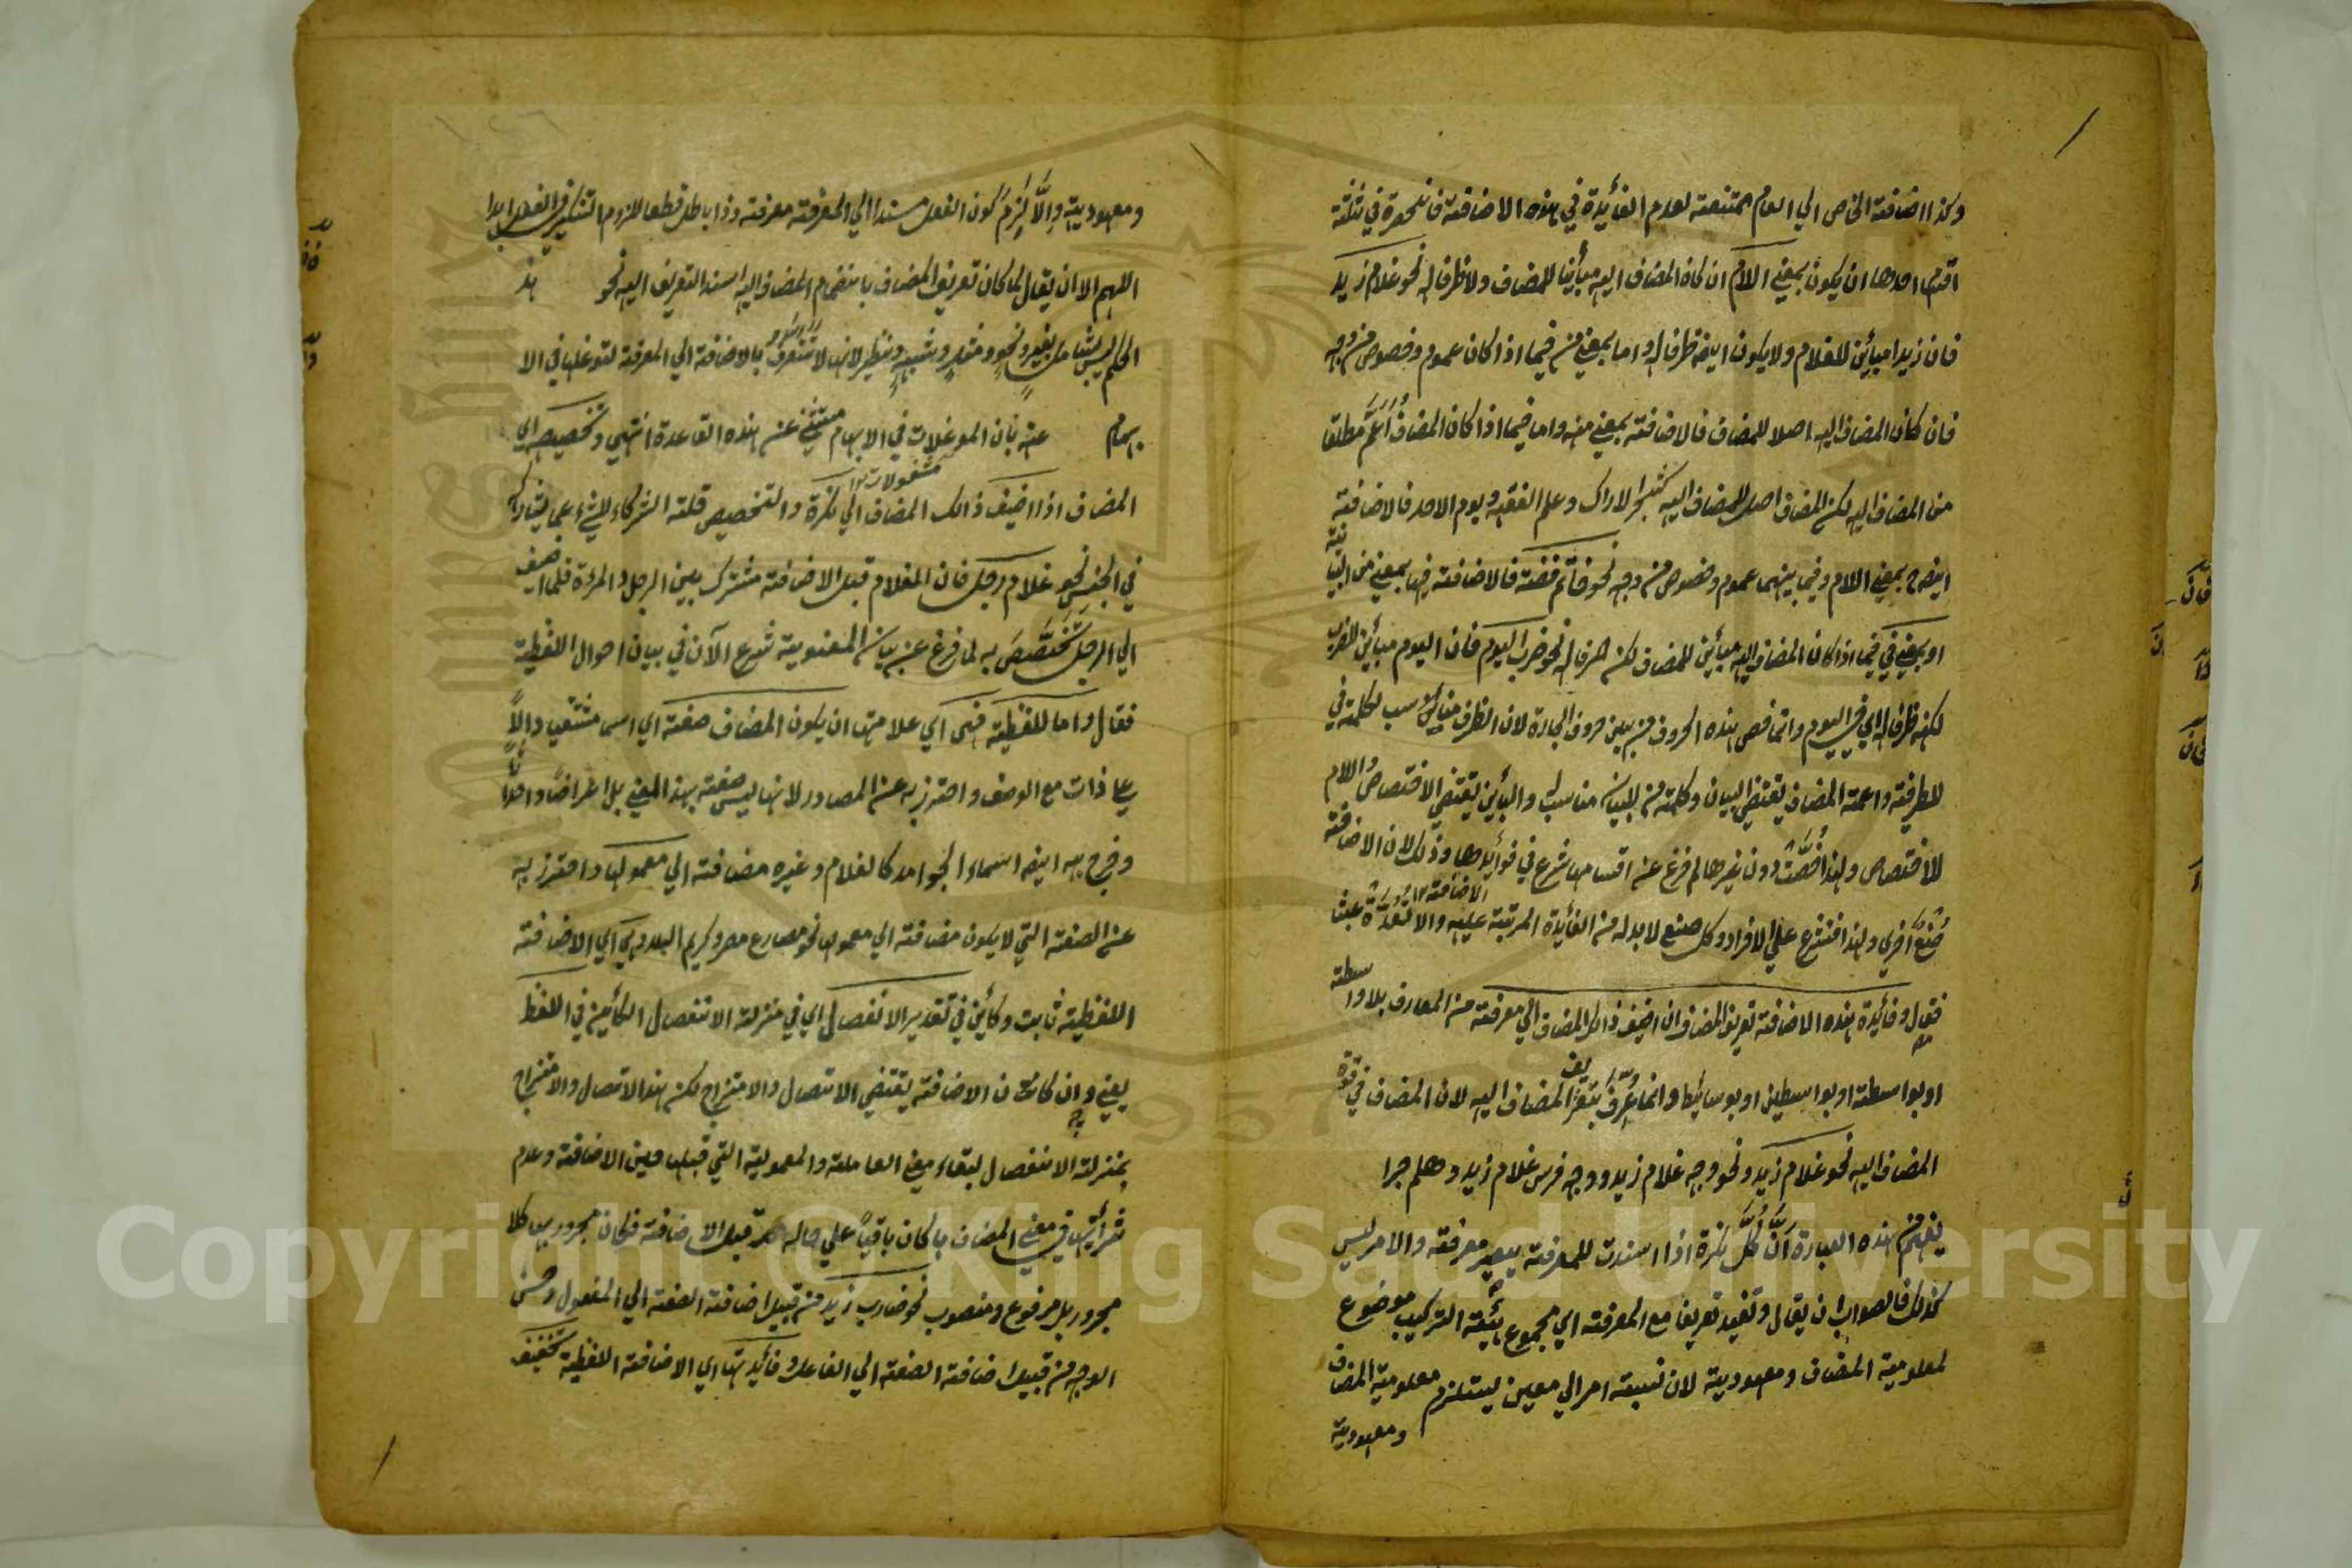 وكذا اضافة الخاص الي العام ممتنعة لعدم الفائدة في هذه الاضافة فانحصرة في ثلثة
اقسام احدها ان يكون بمعني اللام ان كان المضاف اليه مبائنا للمضاف ولا ظرفا له نحو غلام زيد
فان زيدا مبائن للغلام ولا يكون ايضا ظرفا له واما بمعني من فيما اذا كان عموم وخصوص من وجه
فان كان المضاف اليه اصلا للمضاف فالاضافة بمعني من واما فيما اذا كان المضاف اعم مطلقا
من المضاف اليه لكن المضاف اصل للمضاف اليه كشجر الاراك وعلم الفقه ويوم الاحد فالاضافة
ايضا ح بمعني اللام وفيما بينهما عموم وخصوص من وجه نحو خاتم فضة فالاضافة فيها بمعني من البيانية
او بمعني في فيما اذا كان المضاف اليه مبائن للمضاف لكن ظرفا له نحو ضرب اليوم فان اليوم مبائن للضرب
لكنه ظرفا له اي في اليوم وانما خص هذه الحروف من بين حروف الجارة لان الظرف مناسب لكلمة في
للظرفية واعمية المضاف يقتضي البيان وكلمة من للبيان مناسب له والبائن يقتضي الاختصاص واللام
للاختصاص ولهذا خصت دون غيرها لما فرغ عن اقسامها شرع في فوائدها وذلك لان الاضافة
صنع اخري ولهذا فتشرع علي الافراد وكل صنع لا بد له من الفائدة المرتبة عليه والا لتعد عبثا
فقال وفائدة هذه الاضافة تعريف المضاف ان اضيف ذالك المضاف الي معرفة من المعارف بلا واسطة
او بواسطة او بواسطين او بوسائط وانما عرف بتعريف المضاف اليه لان المضاف في قوة
المضاف اليه نحو غلام زيد ونحو وجه غلام زيد ووجه فرس غلام زيد وهلم جرا
يفهم من هذه العبارة ان كل نكرة اذا اسندت للمعرفة يصير معرفة والامر ليس
كذلك فالصواب ان يقال وتفيد تعريفا مع المعرفة اي مجموع هيئة التركيب موضوع
لمعلومية المضاف ومعهودية لان نسبة امر الي معين يستلزم معلومية المضاف
ومعهودية
ومعهودية والا لزم كون الفعل مسندا الي المعرفة معرفة وذا باطل قطعا للزوم التنكير في الفعل ابدا
اللهم الا ان يقال لما كان تعريف المضاف بانضمام المضاف اليه اسند التعريف اليه نحو هذ
الحكم ليس بشامل بغير ونحو ومثل وشبه ونظير لانها لا تتعرف بالاضافة الي المعرفة لتوغلها في الا
بهام عنه بان الموغلات في الابهام مستثني عن هذه القاعدة انتهي وتخصيصه اي
المضاف اذا اضيف ذالك المضاف الي نكرة والتخصيص قلة الشركاء لشيء عما يشاركه
في الجنس نحو غلام رجل فان الغلام قبل الاضافة مشترك بين الرجل والمرءة فلما اضيف
الي الرجل تخصص به لما فرغ عن بيان المعنوية شرع الآن في بيان احوال اللفظية
فقال واما اللفظية فهي اي علامتها ان يكون المضاف صفة اي اسما مشتقا دالا
علي ذات مع الوصف واحترز به عن المصادر لانها ليس صفة بهذا المعني بل اعراضا واحداثا
وخرج به ايضا اسماء الجوامد كالغلام وغيره مضافة الي معمولها واحترز به
عن الصفة التي لا يكون مضافة الي معمولها نحو مصارع مصر وكريم البلد وهي اي الاضافة
اللفظية ثابت وكائن في تقدير الانفصال اي في منزلة الانفصال الكائن في اللفظ
يعني وان كانت الاضافة يقتضي الاتصال والامتزاج لكن هذا الاتصال والامتزاج
بمنزلة الانفصال لبقاء معني العاملة والمعمولية التي قبلها حين الاضافة وعدم
تأثيرها في معني المضاف بل كان باقيا علي حاله قبل الاضافة فكان مجرورها كلا
مجرور بل مرفوع ومنصوب نحو ضارب زيد من قبيل اضافة الصفة الي المفعول وحسن
الوجه من قبيل اضافة الصفة الي الفاعل وفائدتها اي الاضافة اللفظية تخفيف